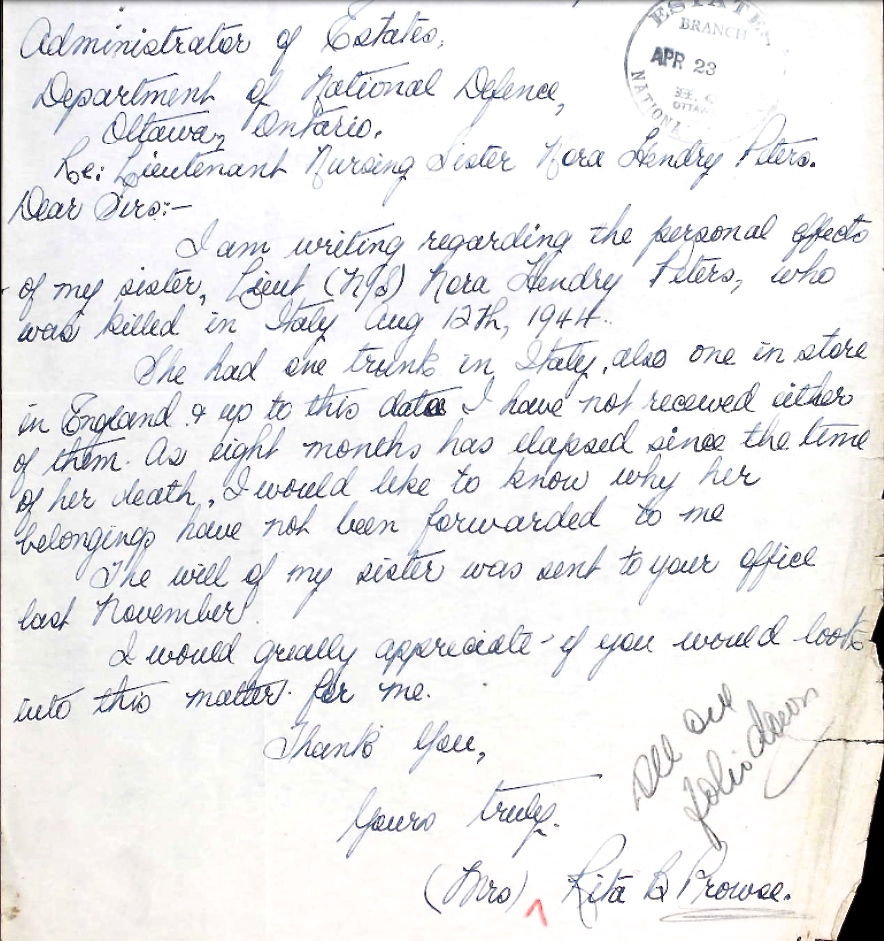 Administrator of Estates,
ESTATES
BRANCH
APR 23
OTTAWA
NATIONAL
Department of National Defence,
Ottawa, Ontario.
Re: Lieutenant Nursing Sister Nora Hendry Peters.
Dear Sirs:-
I am writing regarding the personal effects
of my sister, Lieut (N/S) Nora Hendry Peters, who
was killed in Italy Aug 12th, 1944.
She had one trunk in Italy, also one in store
in England & up to this date I have not received either
of them. As eight months has elapsed since the time
of her death, I would like to know why her
belongings have not been forwarded to me
The will of my sister was sent to your office
last November.
I would greatly appreciate if you would look
into this matter for me.
Thank You,
Yours truly.
All are
folio down
(Mrs) Rita B Prowse.